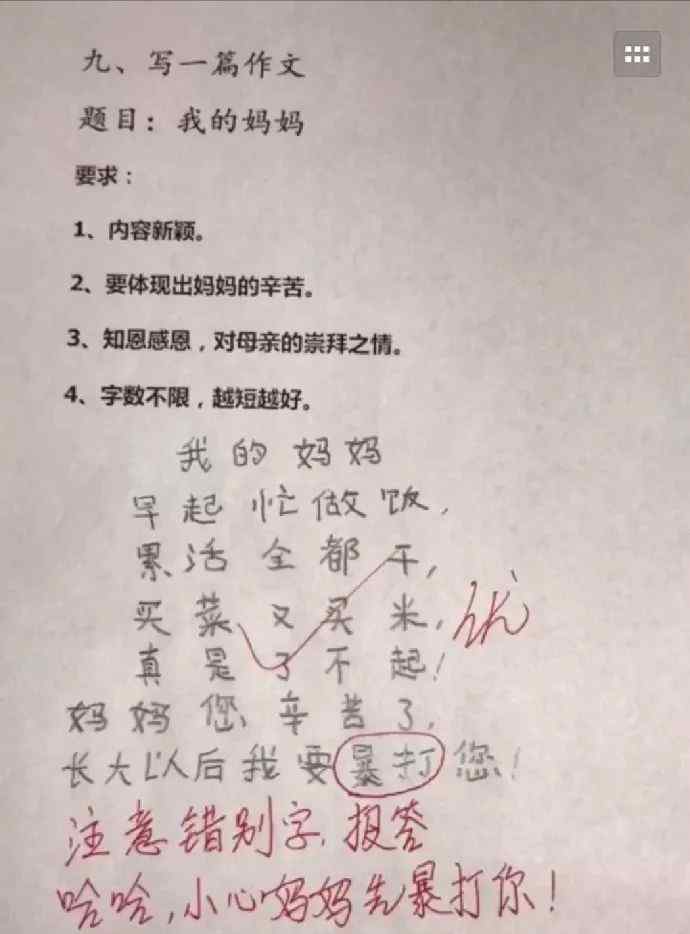 九、写一篇作文
题目：我的妈妈
要求：
1、内容新颖。
2、要体现出妈妈的辛苦。
3、知恩感恩，对母亲的崇拜之情。
4、字数不限，越短越好。
我的妈妈
早起忙做饭，
累活全都干，
买菜又买米，
优
真是了不起！
妈妈您辛苦了，
长大以后我要暴打您！
注意错别字，报答
哈哈，小心妈妈先暴打你！